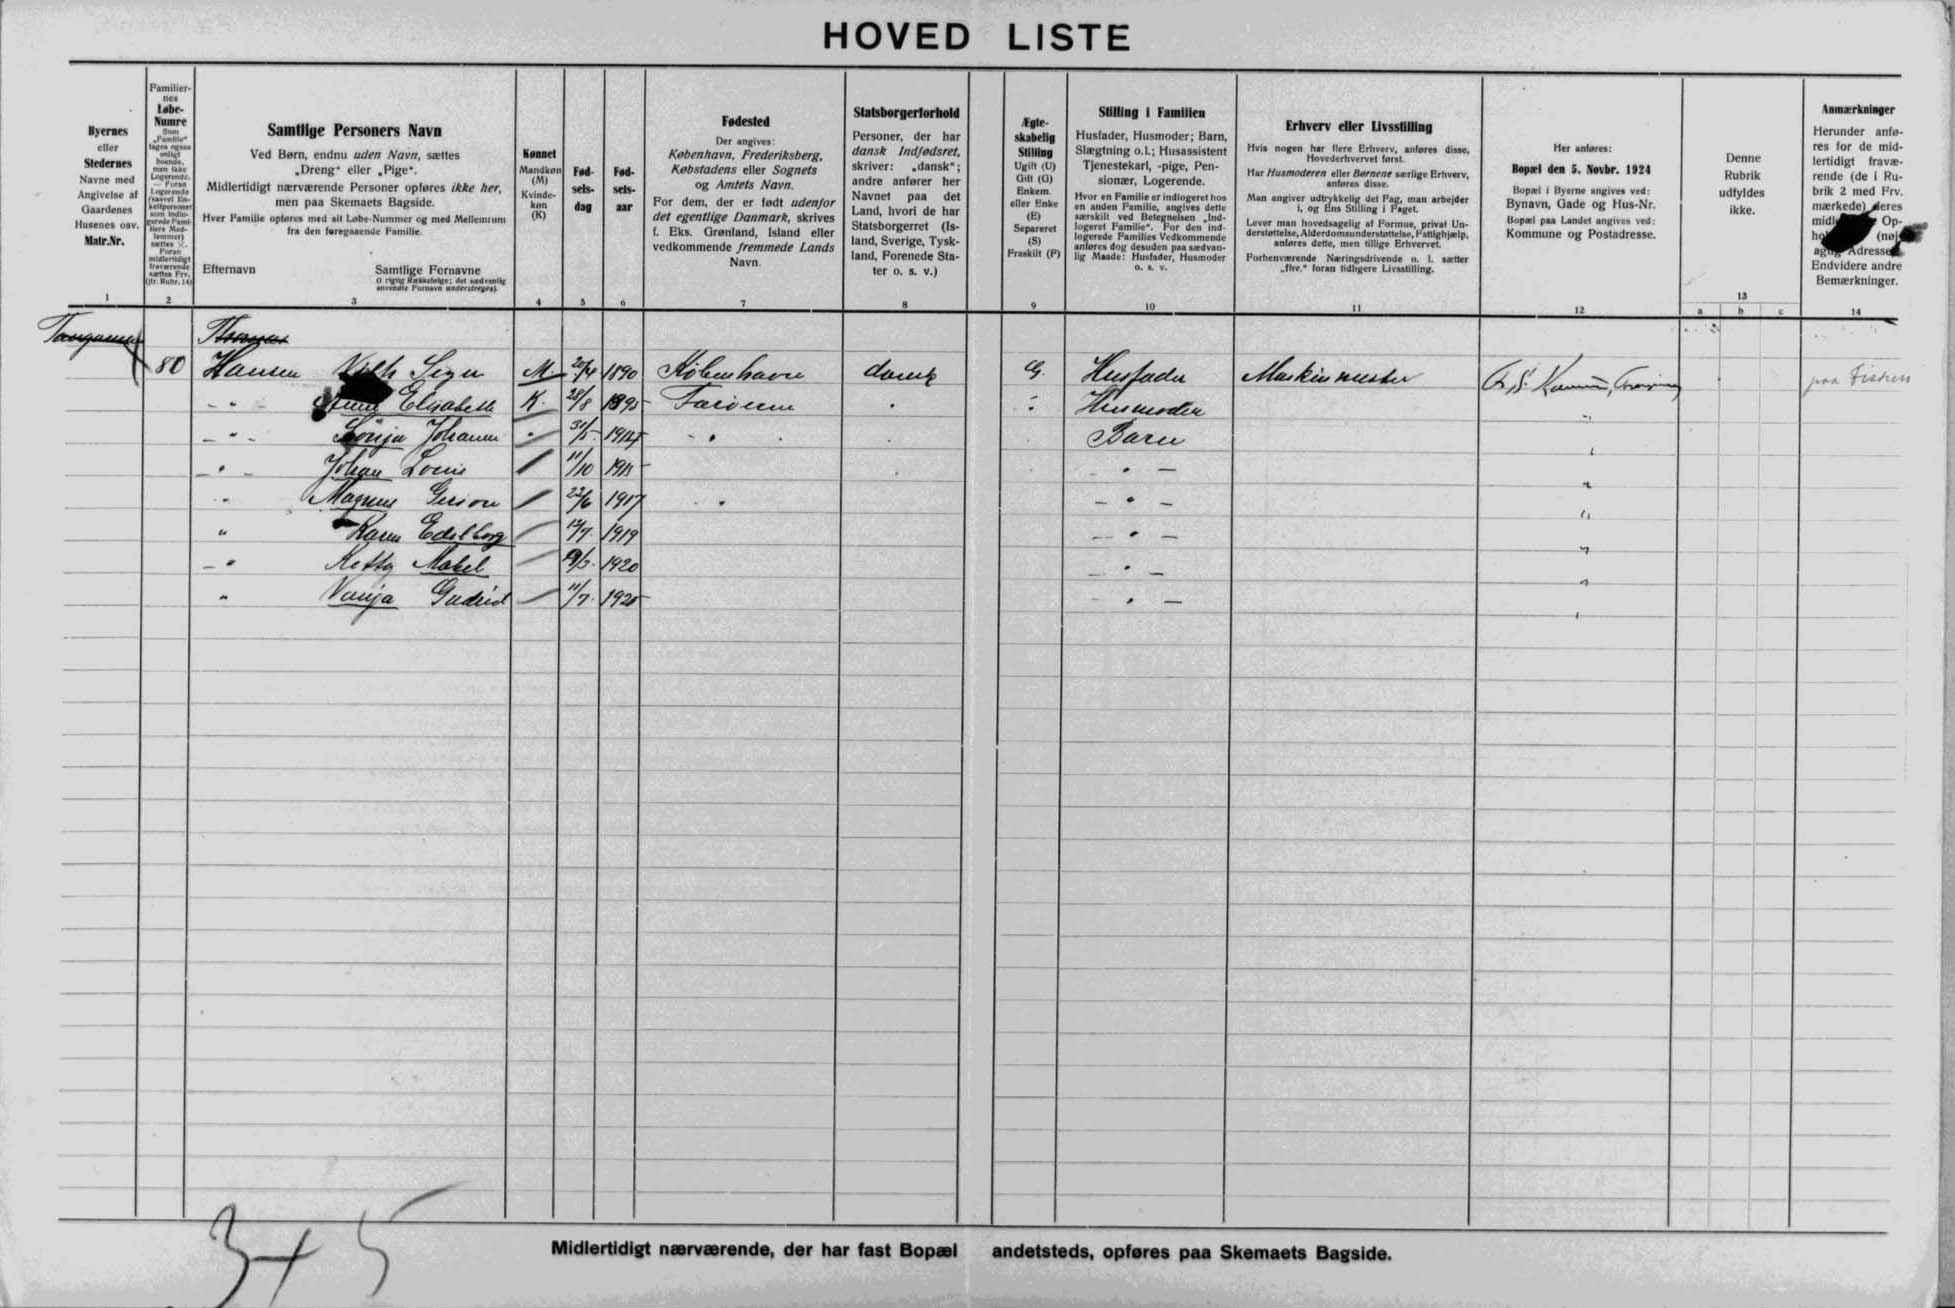 HOVED LISTE
Byernes
eller
Stedernes
Navne med
Angivelse af
Gaardenes
Husenes osv.
Matr.Nr.
1
Familier-
nes
Løbe-
Numre
Som
„Familie“
tages ogsaa
enligt
boende,
men ikke
Logerende.
— Foran
Logerende
sættes
Foran
midlertidigt
fraværende
sættes Frv.
(jfr. Rubr. 14)
2
Samtlige Personers Navn
Ved Børn, endnu uden Navn, sættes
„Dreng“ eller „Pige“.
Midlertidigt nærværende Personer opføres ikke her,
men paa Skemaets Bagside.
Hver Familie opføres med sit Løbe-Nummer og med Mellemrum
fra den foregaaende Familie.
Efternavn Samtlige Fornavne
(i rigtig Rækkefølge; det sædvanlig
anvendte Fornavn understreges).
3
Kønnet
Mandkøn
(M)
Kvinde-
køn
(K)
4
Fød-
sels-
dag
5
Fød-
sels-
aar
6
Fødested
Der angives:
København, Frederiksberg,
Købstadens eller Sognets
og Amtets Navn.
For dem, der er født udenfor
det egentlige Danmark, skrives
f. Eks. Grønland, Island eller
vedkommende fremmede Lands
Navn.
7
Statsborgerforhold
Personer, der har
dansk Indfødsret,
skriver: „dansk“;
andre anfører her
Navnet paa det
Land, hvori de har
Statsborgerret (Is-
land, Sverige, Tysk-
land, Forenede Sta-
ter o. s. v.)
8
Ægte-
skabelig
Stilling
Ugift (U)
Gift (G)
Enkem.
eller Enke
(E)
Separeret
(S)
Fraskilt (F)
9
Stilling i Familien
Husfader, Husmoder; Barn,
Slægtning o.l.; Husassistent
Tjenestekarl, -pige, Pen-
sionær, Logerende.
Hvor en Familie er indlogeret hos
en anden Familie, angives dette
særskilt ved Betegnelsen „Ind-
logeret Familie“. For den ind-
logerede Families Vedkommende
anføres dog desuden paa sædvan-
lig Maade: Husfader, Husmoder
o. s. v.
10
Erhverv eller Livsstilling
Hvis nogen har flere Erhverv, anføres disse,
Hovederhvervet først.
Har Husmoderen eller Børnene særlige Erhverv,
anføres disse.
Man angiver udtrykkelig det Fag, man arbejder
i, og Ens Stilling i Faget.
Lever man hovedsagelig af Formue, privat Un-
derstøttelse, Alderdomsunderstøttelse, Fattighjælp,
anføres dette, men tillige Erhvervet.
Forhenværende Næringsdrivende o. l. sætter
„fhv.“ foran tidligere Livsstilling.
11
Her anføres:
Bopæl den 5. Novbr. 1924
Bopæl i Byerne angives ved:
Bynavn, Gade og Hus-Nr.
Bopæl paa Landet angives ved:
Kommune og Postadresse.
12
Denne
Rubrik
udfyldes
ikke.
13
a b c
Anmærkninger
Herunder anfø-
res for de mid-
lertidigt fravæ-
rende (de i Ru-
brik 2 med Frv.
mærkede) deres
Op-
(nøj-
Adresse
Endvidere andre
Bemærkninger.
14
80 Hansen M. 20/4 1890 København dansk G. Husfader Maskinmester paa Fiskeri
" Elisabeth K. 28/8 1895 Færøerne " Husmoder "
" Sonja Johanne " 31/5 1914 " Barn "
" Johan Louis 11/10 1915 " "
" Magnus Gerion 22/6 1917 " " "
" Karen Edelborg 12/7 1919 " "
" Ketty Mabel 1920 " "
" Vanja Gudrid 11/7 1925 " "
Midlertidigt nærværende, der har fast Bopæl andetsteds, opføres paa Skemaets Bagside.
3 + 5